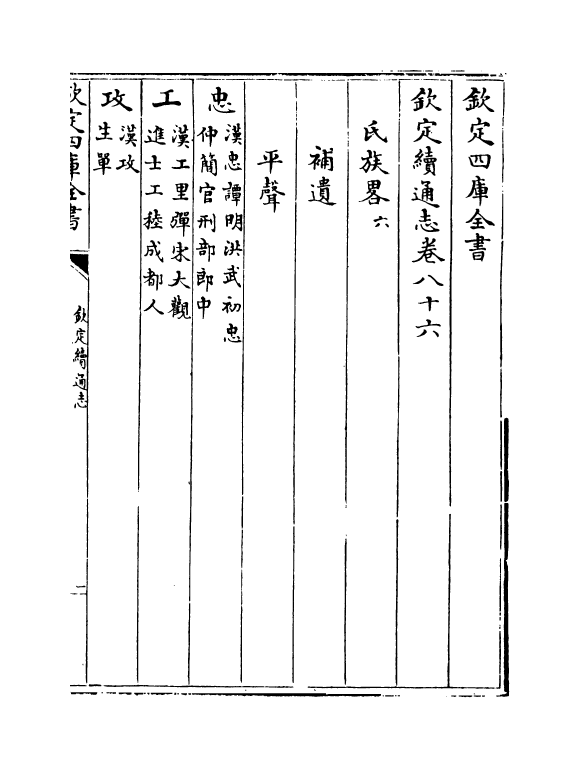 欽定四庫全書
欽定續通志卷八十六
氏族畧六
補遺
平聲
忠漢忠譚明洪武初忠
仲簡官刑部郎中
工漢工里彈宋大觀
進士工稑成都人
攻漢攻
生單
欽定四庫全書
欽定續通志